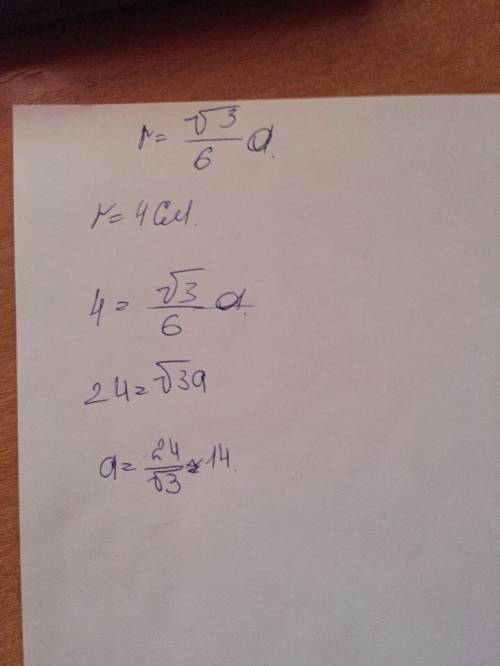 r = √3/6 a.
r = 4 см.
4 = √3/6 a.
24 = √3a
a = 24/√3 ≈ 14.